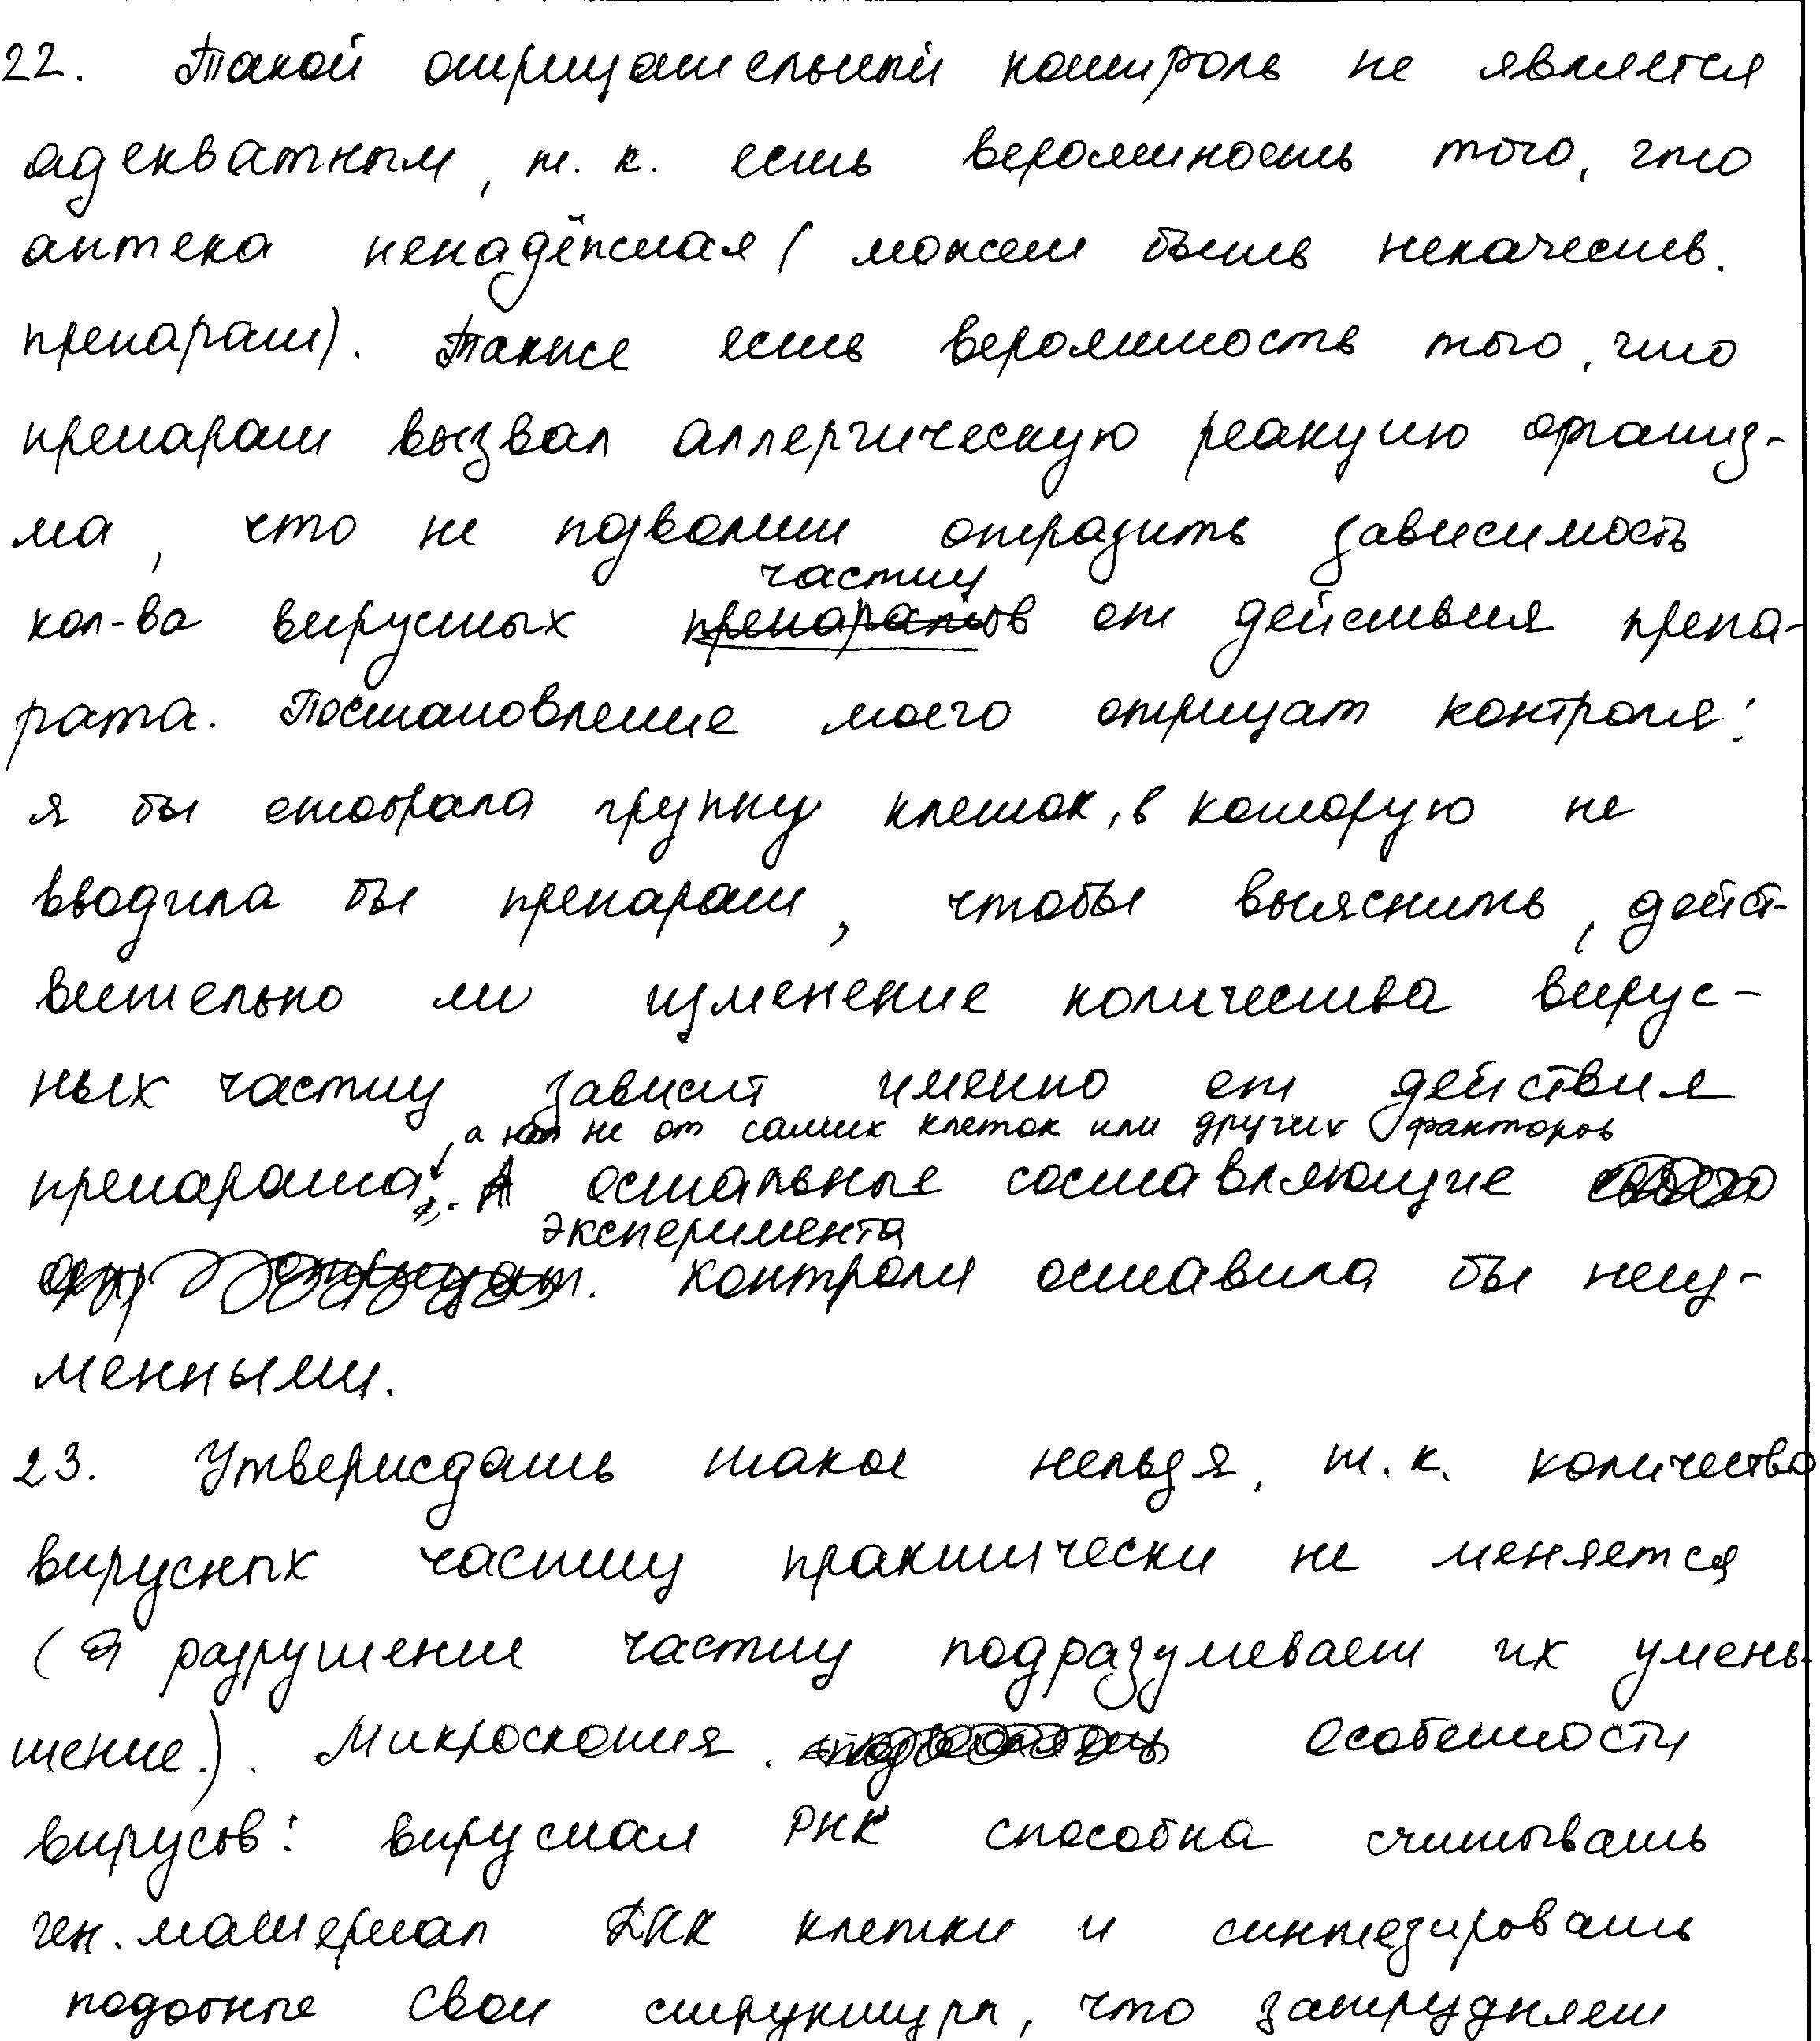 22. Такой отрицательный контроль не является
адекватным, т. к. есть вероятность того, что
аптека ненадёжная (может быть некачеств.
препарат). Также есть вероятность того, что
препарат вызвал аллергическую реакцию организ-
ма, что не позволит отразить зависимость
частиц
кол-ва вирусных препаратов от действия препа-
рата. Постановление моего отрицат контроля:
я бы отобрала группу клеток, в которую не
вводила бы препарат, чтобы выяснить, дейст-
вительно ли изменение количества вирус-
ных частиц зависит именно от действия
, а не от самих клеток или других факторов
препарата. А остальные составляющие
эксперимента
отрицат. контроля оставила бы неиз-
менными.
23. Утверждать такое нельзя, т. к. количество
вирусных частиц практически не меняется
(а разрушение частиц подразумевает их умень-
шение.). Микроскопия. особенности
вирусов: вирусная РНК способна считывать
ген. материал ДНК клетки и синтезировать
подобные свои структуры, что затрудняет